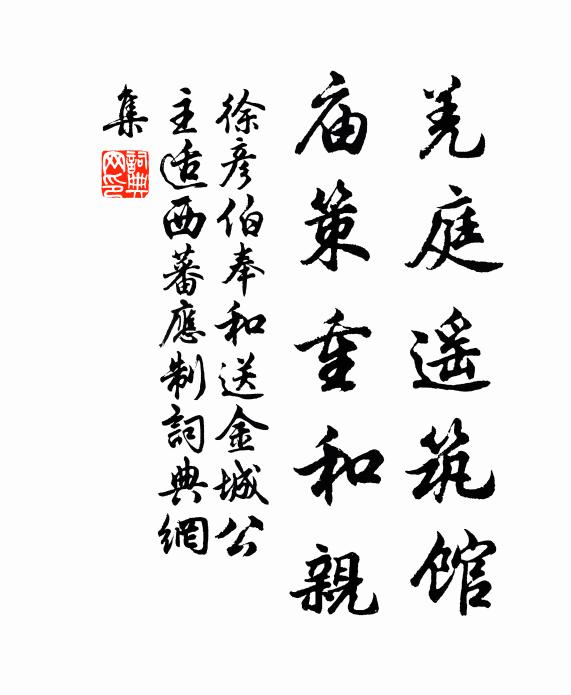 羌庭遥筑馆
庙策重和親
徐彦伯奉和送金城公
主适西蕃應制詞典網
集
詞典網印